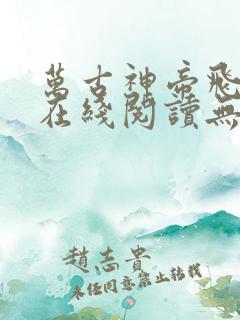 萬古神帝飛
在綫閱讀無
趙志貴
未经同意禁止转载